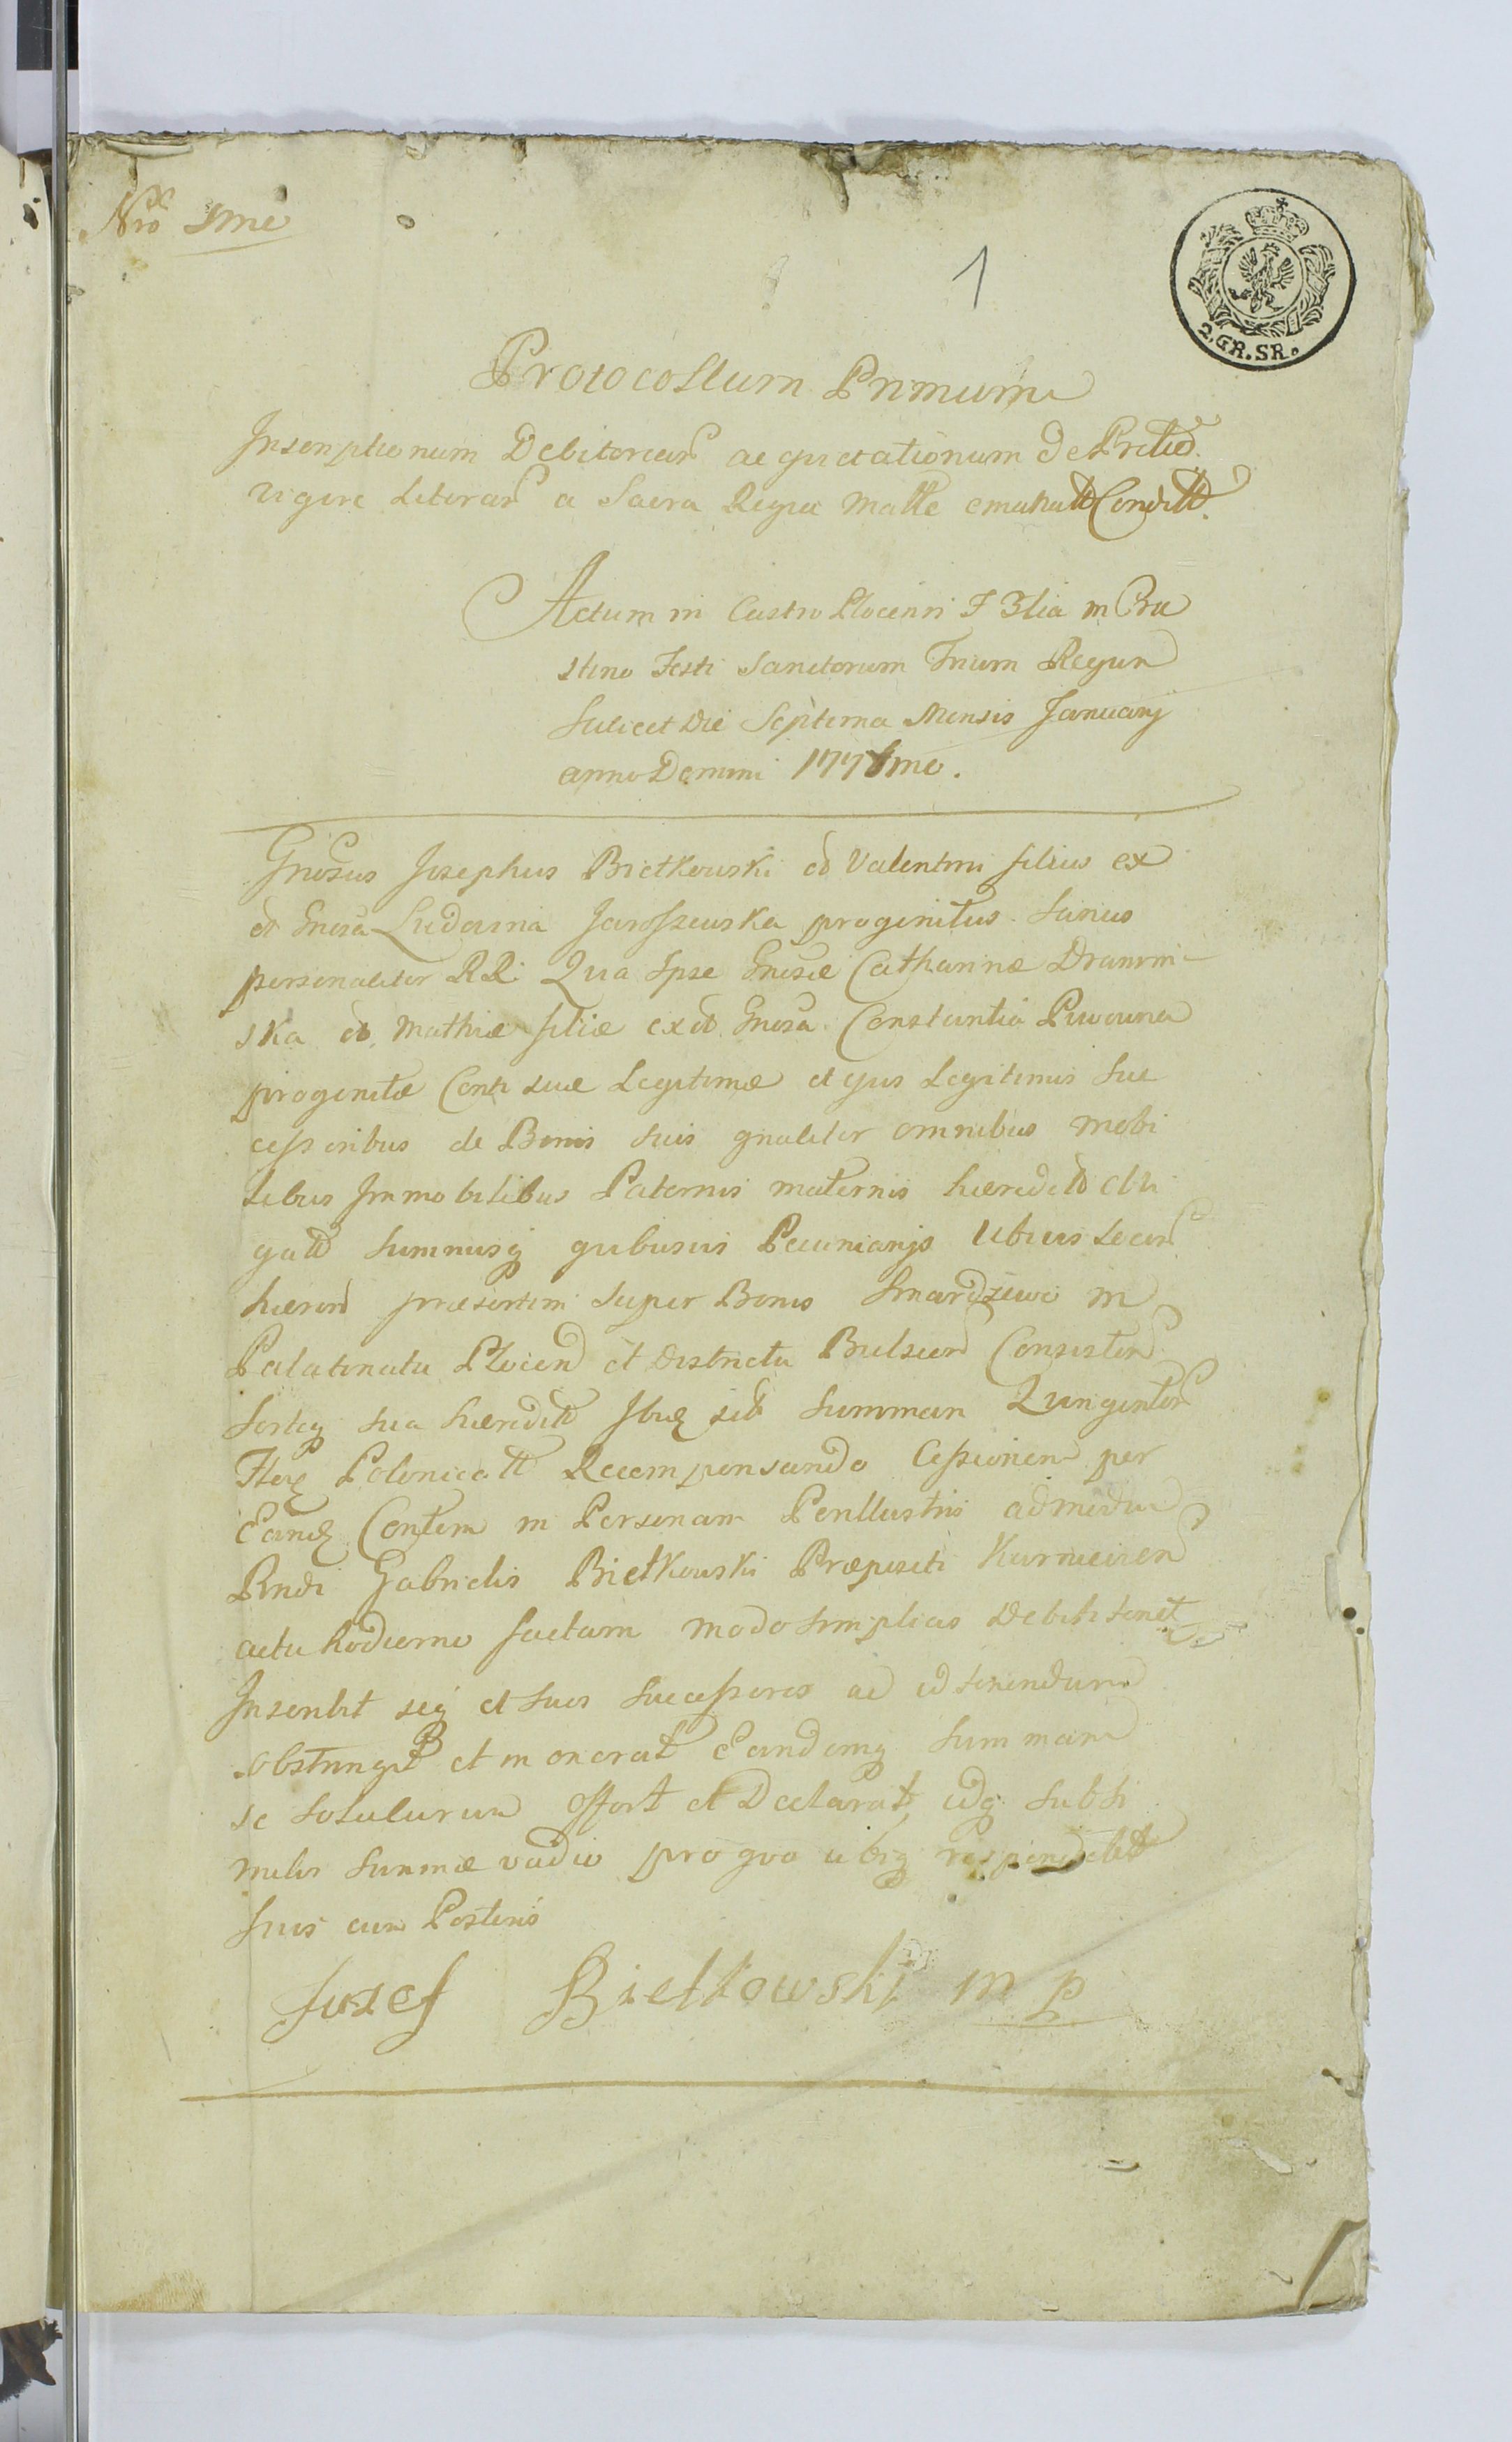 Nro 1me
1
2.GR.SR.
Protocollum Primum
Inscriptionum Debitorum ac quietationum de Pretio
vigore Literar a Sacra Regia Matte emanatt Conditt.
Actum in Castro Plocensi F 3tia in Cra
stino Festi Sanctorum Trium Regum
Scilicet Die Septima Mensis Januarij
anno Domini 1778mo.
Gnosus Josephus Bietkowski od Valentini filius ex
od Gnosa Ludovina Jaroszewska progenitus Sanus
personaliter RR. Quia Ipse Gnosæ Catharinæ Dramin
ska od. Mathiæ filiæ ex od Gnosa Constantia Piwowna
progenitæ Conti suæ Legitimæ et ejus Legitimis Suc
cessoribus de Bonis suis gnaliter omnibus mobi
libus Immobilibus Paternis maternis hæreditt obli
gatt Summisq quibusvis Pecuniarijs Ubivis Locor
hæren præsertim super Bonis Smardzewo in
Palatinatu Plocen et Districtu Bielscen Consisten
Sorteq sua hæreditt Ibiq sub Summam Quingentor
Flor Polonicatt Recompensando Cessionem per
Eand Contem in Personam Perillustris admodum
Rndi Gabrielis Bietkowski Præpositi
actu hodierno factam modo simplicis Debiti tenet
Inscribit seq et suos Successores ad id tenendum
obstringit et in onerat Eandemq Summam
se soluturum offert et Declarat, idq sub si
milis Summæ vadio pro quo ubiq respondebit
suis cum Posteris
Jusef Bietkowski mp